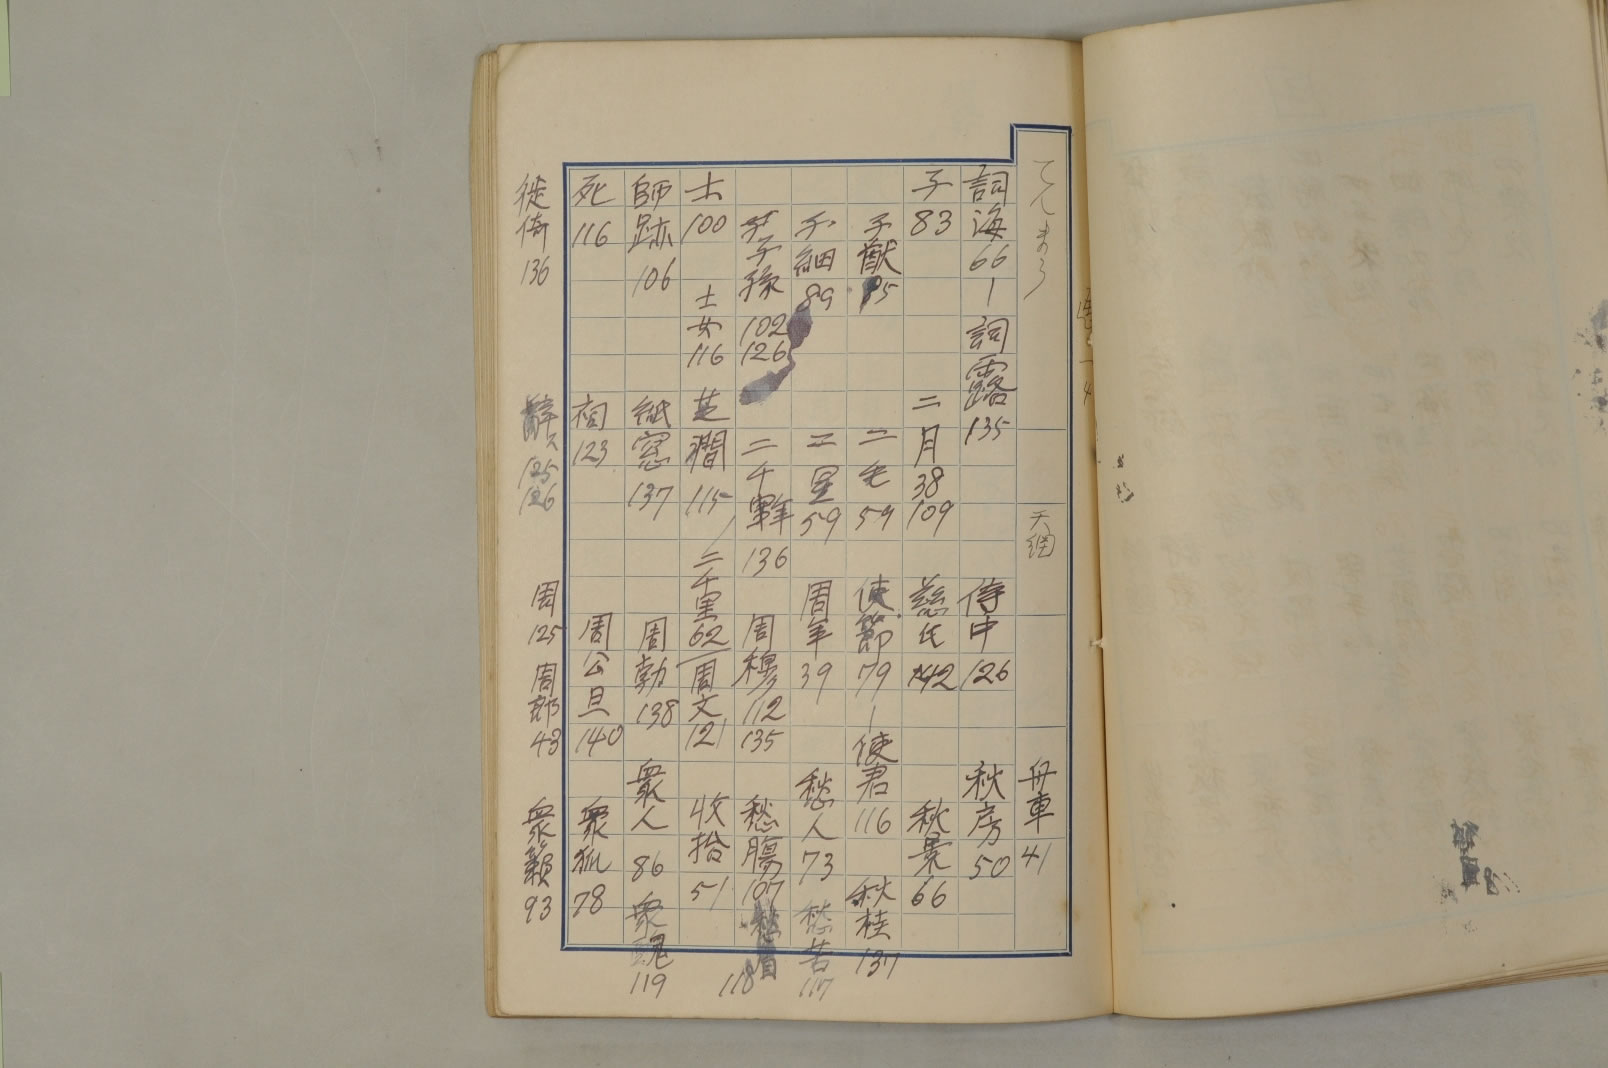 てんまう 天網 舟車 41
詞海 66 ー 詞露 135 侍中 126 秋房 50
子 83 二月 38 109 慈氏 142 秋景 66
子猷 85 二毛 59 使節 79 ー 使君 116 秋桂 137
子細 89 二星 59 周年 39 愁人 73 愁苦 117
子孫 102 126 二千年 136 周穆 112 135 愁腸 107 愁眉 118
士 100 士女 116 芝澗 115 二千里 62 周文 121 收拾 51
師跡 106 紙窓 137 周勃 138 衆人 86 衆醜 119
死 116 祠 123 周公旦 140 衆狐 78
徙倚 136 辞ス 125 126 周 125 周郎 43 衆籟 93